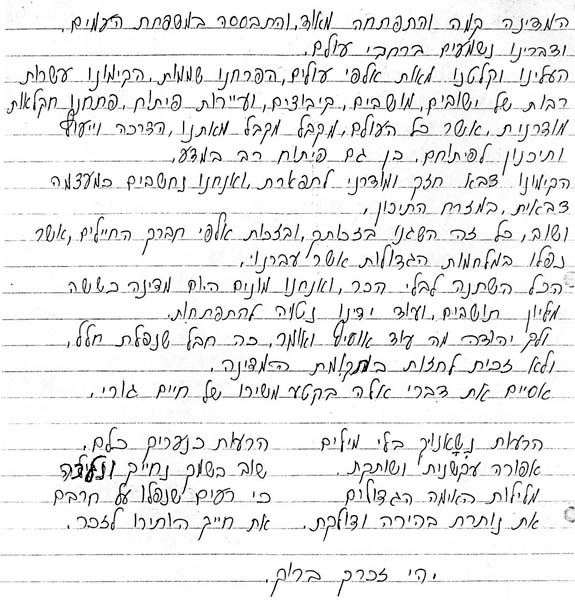 המדינה קמה והתפתחה מאוד, והתבססה במשפחת העמים,
ודברינו נשמעים ברחבי עולם.
העלינו וקלטנו מאות אלפי עולים, הפרחנו שממות, הקימונו עשרות
רבות של ישובים, מושבים, קיבוצים, ועיירות פיתוח, פתחנו חקלאות
מודרנית, אשר כל העולם, מקבל מקבל מאתנו, הדרכה וייעוץ
ותיכנון לפיתוחם. כן גם פיתוח רב במדע.
הקימונו צבא חזק ומודרני לתפארת, ואנחנו נחשבים כמעצמה
צבאית, במזרח התיכון,
ושוב, כל זה השגנו בזכותך, ובזכות אלפי חבריך החיילים, אשר
נפלו במלחמות הגדולות אשר עברנו.
הכל השתנה לבלי הכר, ואנחנו מונים היום מדינה כששה
מליון תושבים, ועוד ידינו נטויה להתפתחות.
ולך יהודה מה עוד אוסיף ואומר, כה חבל שנפלת חלל,
ולא זכית לחזות בתקומת המדינה.
אסיים את דברי אלה בקטע משירו של חיים גורי.
הרעות נשאנוך בלי מילים הרעות כנערים כלם.
אפורה עקשנית ושותקת. שוב בשמך נחייך ונלכה
מלילות האימה הגדולים כי רעים שנפלו על חרבם
את נותרת בהירה ודולקת. את חייך הותירו לזכר.
יהי זכרך ברוך.